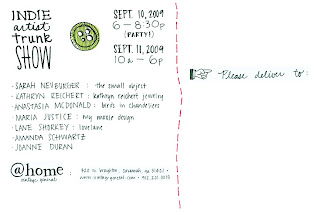 INDIE
artist
trunk
SHOW
SEPT. 10, 2009
6 – 8:30p
(PARTY!)
SEPT. 11, 2009
10a – 6p
Please deliver to:
· SARAH NEUBURGER : the small object
· KATHRYN REICHERT : kathryn reichert jewelry
· ANASTASIA MCDONALD : birds in chandeliers
· MARIA JUSTICE : my maxie design
· LANE SHORKEY : lovelane
· AMANDA SCHWARTZ
· JOANNE DURAN
@home
vintage general
Savannah, GA 31401